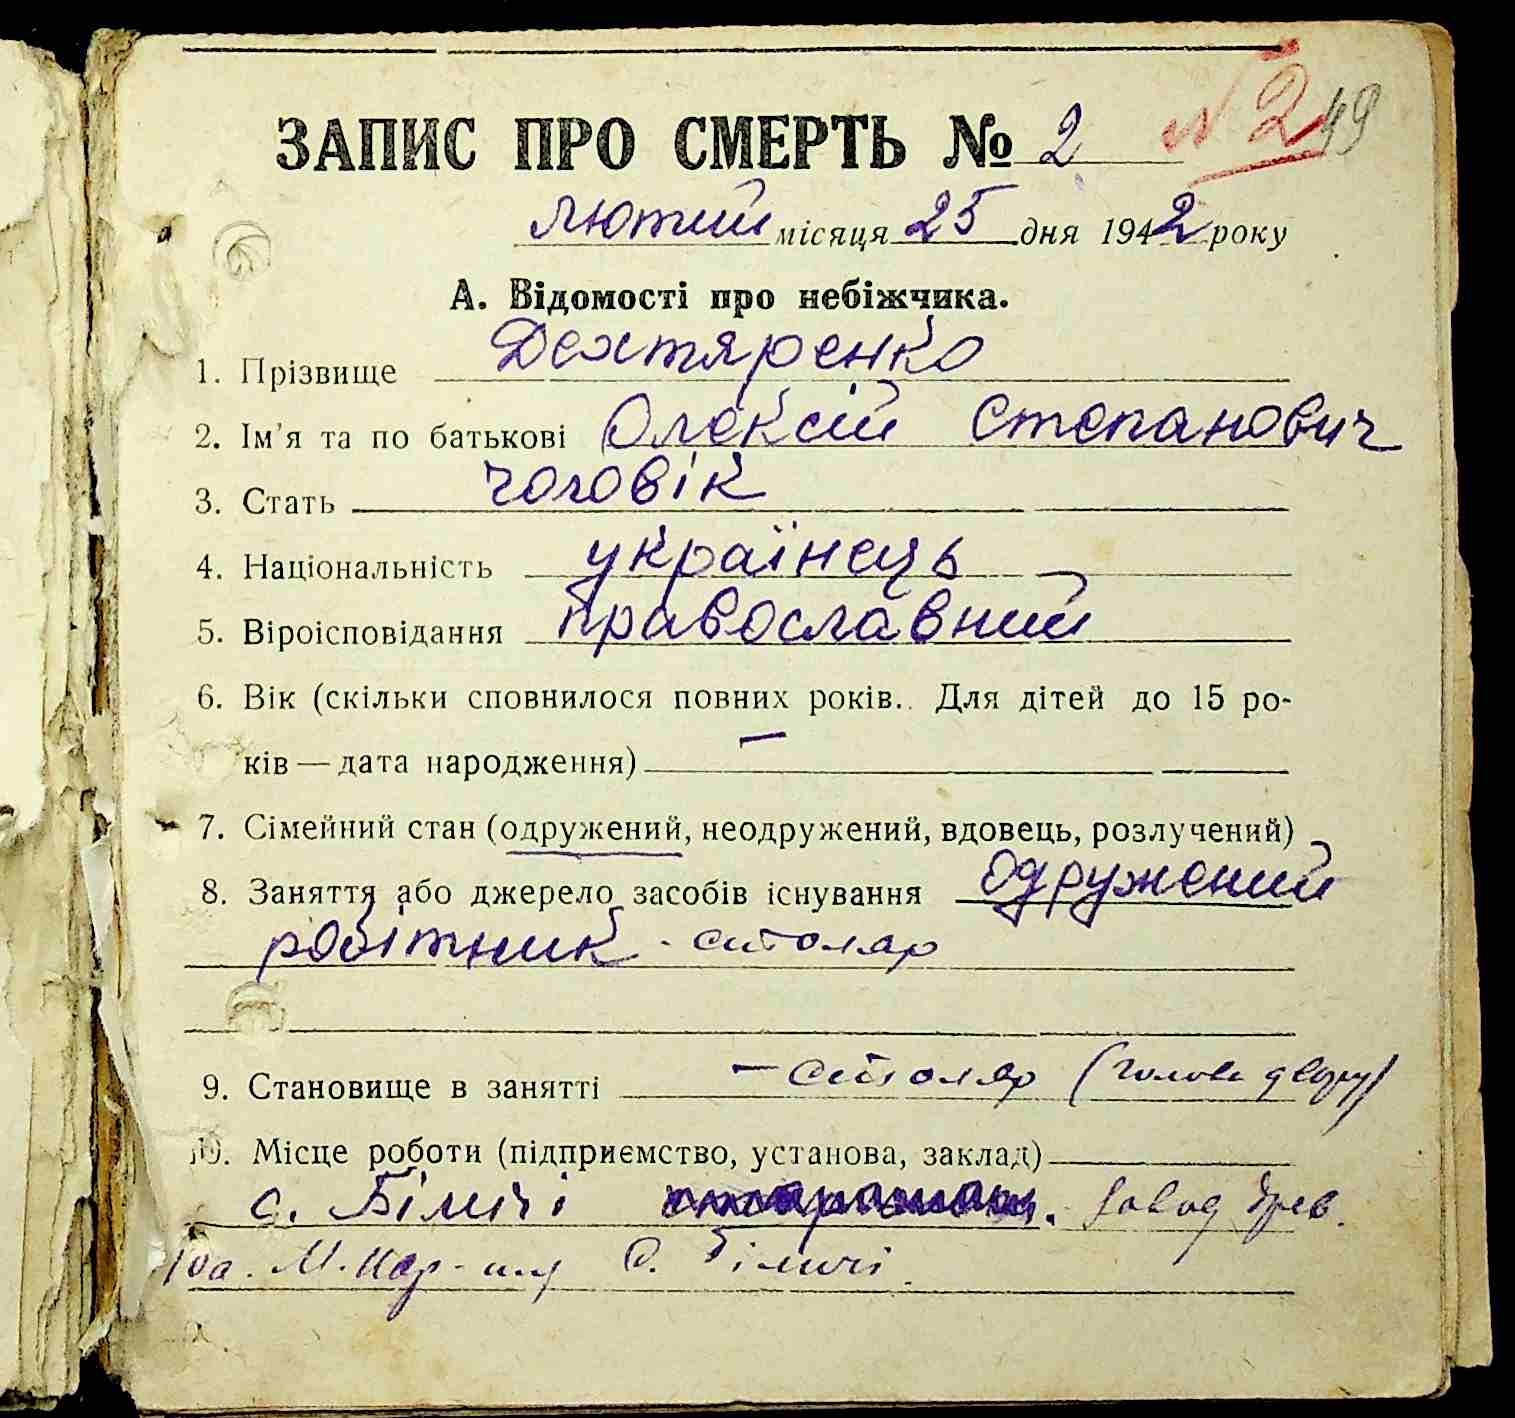 N 2 49
ЗАПИС ПРО СМЕРТЬ № 2
лютий місяця 25 дня 1942 року
А. Відомості про небіжчика.
1. Прізвище Дехтяренко
2. Ім'я та по батькові Олексій Степанович
3. Стать чоловік
4. Національність українець
5. Віроісповідання православний
6. Вік (скільки сповнилося повних років. Для дітей до 15 ро-
ків — дата народження) —
7. Сімейний стан (одружений, неодружений, вдовець, розлучений)
8. Заняття або джерело засобів існування одружений
робітник - столяр
9. Становище в занятті — столяр (голова двору)
10. Місце роботи (підприємство, установа, заклад)
с. Біличі завод древ.
10а. М. с. Біличі.